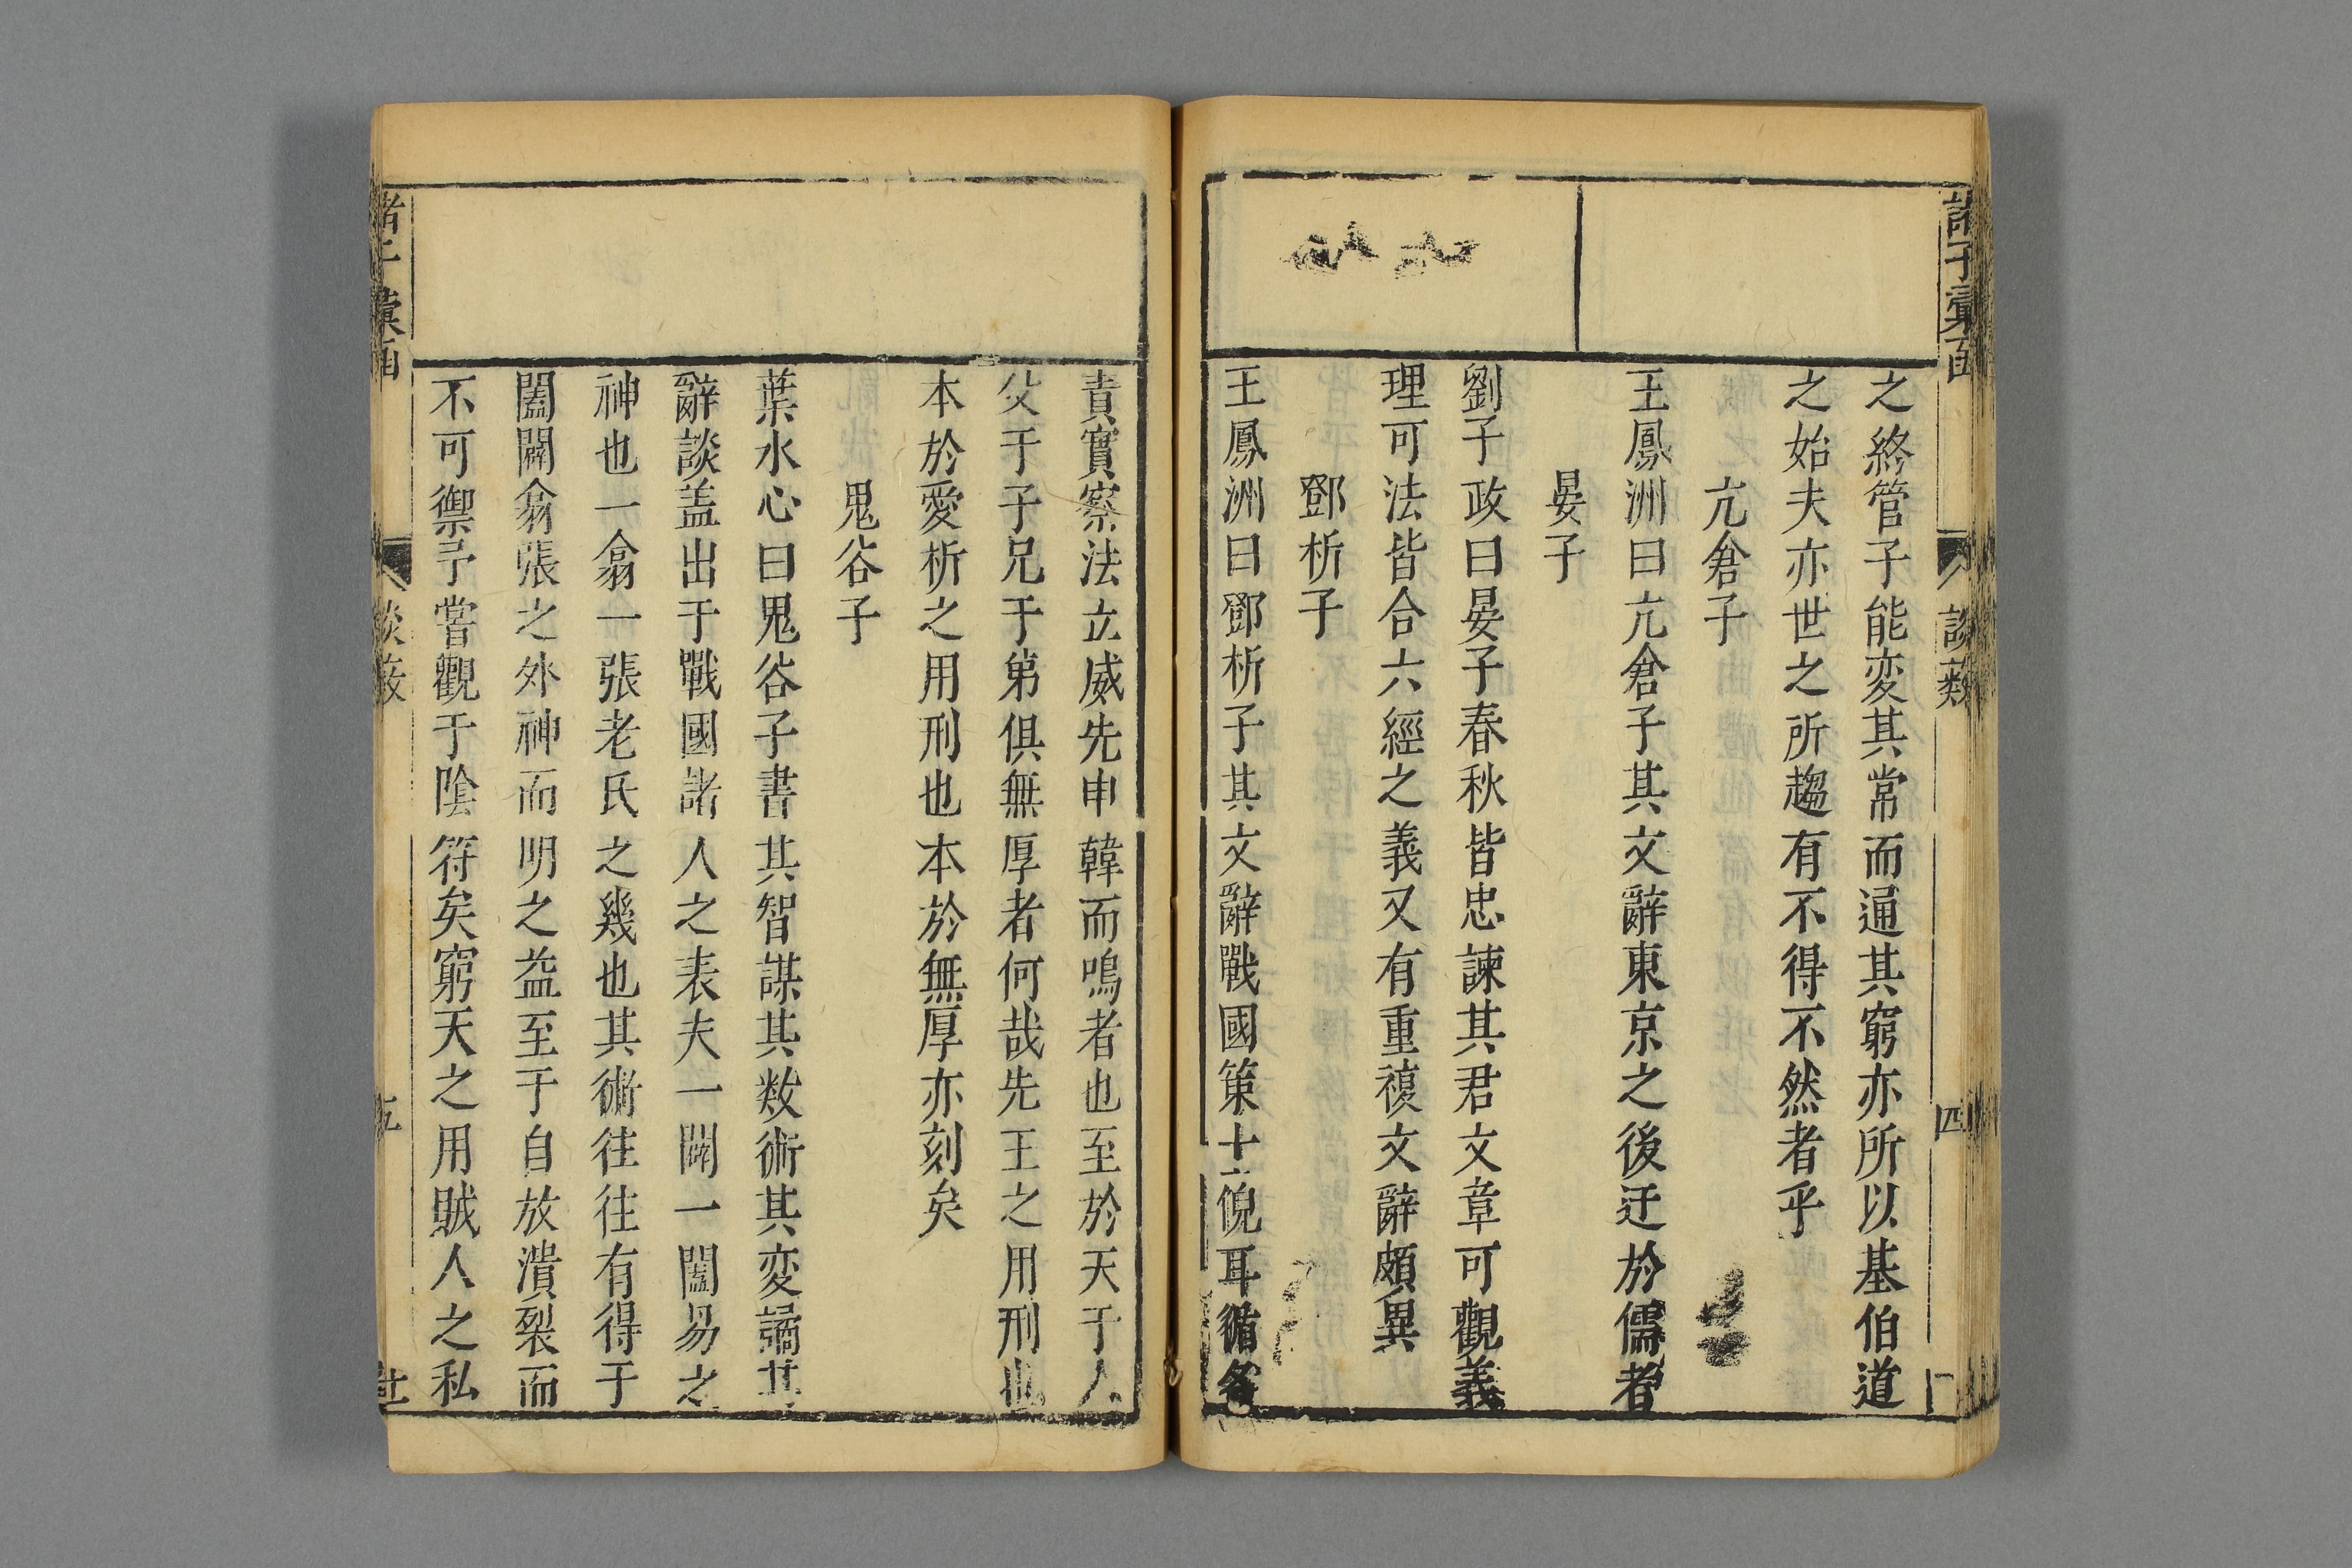 諸子彙函
談藪
四
之終管子能変其常而通其窮亦所以基伯道
之始夫亦世之所趨有不得不然者乎
亢倉子
王鳳洲曰亢倉子其文辭東京之後迂於儒者
晏子
劉子政曰晏子春秋皆忠諫其君文章可觀義
理可法皆合六經之義又有重複文辭頗異
鄧析子
王鳳洲曰鄧析子其文辭戰國策士倪耳循名
責實察法立威先申韓而鳴者也至於天于人
父于子兄于弟俱無厚者何哉先王之用刑也
本於愛析之用刑也本於無厚亦刻矣
鬼谷子
葉水心曰鬼谷子書其智謀其数術其変譎其
辭談盖出于戰國諸人之表夫一闢一闔易之
神也一翕一張老氏之幾也其術往往有得于
闔闢翕張之外神而明之益至于自放潰裂而
不可禦予嘗觀于陰符矣窮天之用賊人之私
諸子彙函
談薮
五